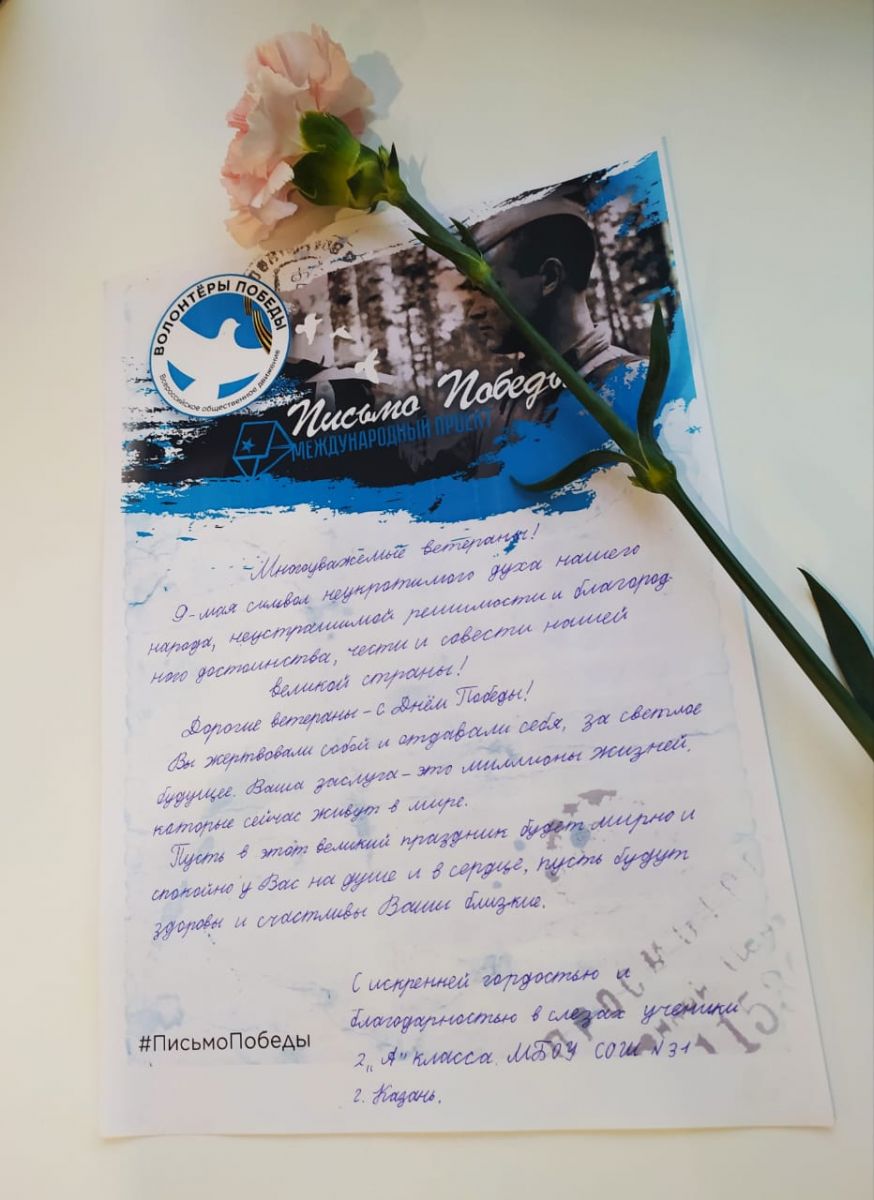 ВОЛОНТЁРЫ ПОБЕДЫ
Всероссийское общественное движение
Письмо Победы
МЕЖДУНАРОДНЫЙ ПРОЕКТ
Многоуважемые ветераны!
9-мая символ неукротимого духа нашего
народа, неустрашимой решимости и благород-
ного достоинства, чести и совести нашей
великой страны!
Дорогие ветераны - с Днём Победы!
Вы жертвовали собой и отдавали себя, за светлое
будущее. Ваша заслуга - это миллионы жизней,
которые сейчас живут в мире.
Пусть в этот великий праздник будет мирно и
спокойно у Вас на душе и в сердце, пусть будут
здоровы и счастливы Ваши близкие.
С искренней гордостью и
благодарностью в слезах ученики
2 „А" класса. МБОУ СОШ №31
г. Казань.
#ПисьмоПобеды